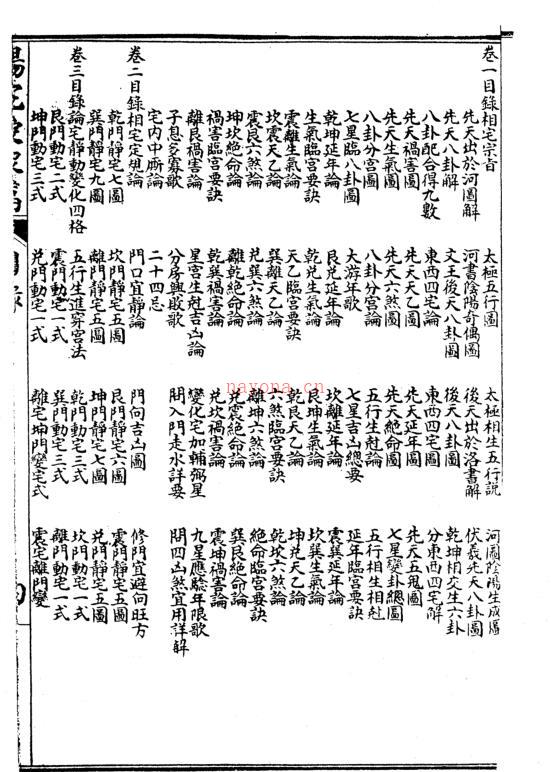 卷一目錄相宅宗旨 太極五行圖 太極相生五行說 河圖陰陽生成圖
先天出於河圖解 河書陰陽奇偶圖 後天出於洛書解 伏羲先天八卦圖
先天八卦解 文王後天八卦圖 後天八卦圖 乾坤相交生六卦
八卦配合得九數 東西四宅論 東西四宅圖 分東西四宅解
先天禍害圖 先天天乙圖 先天延年圖 先天五鬼圖
先天生氣圖 先天六煞圖 先天絕命圖 七星變卦總圖
八卦分宮圖 八卦分宮論 五行生尅論 五行相生相尅
七星臨八卦圖 大游年歌 七星吉凶總要 延年臨宮要訣
乾坤延年論 艮兌延年論 坎離延年論 震巽延年論
生氣臨宮要訣 乾兌生氣論 艮坤生氣論 坎巽生氣論
震離生氣論 天乙臨宮要訣 乾艮天乙論 坤兌天乙論
坎震天乙論 巽離天乙論 六煞臨宮要訣 乾坎六煞論
震艮六煞論 兌巽六煞論 離坤六煞論 絕命臨宮要訣
坤坎絕命論 離乾絕命論 兌震絕命論 巽艮絕命論
禍害臨宮要訣 乾巽禍害論 兌坎禍害論 震坤禍害論
離艮禍害論 星宮生尅吉凶論 變化宅加輔弼星 九星應驗年限歌
子息多寡歌 分房興敗歌 開入門走水詳要 開四凶煞宜用詳解
宅内中廝論 二十四忌
卷二目錄相宅定規論 門口宜靜論 門向吉凶圖 修門宜避向旺方
乾門靜宅七圖 坎門靜宅五圖 艮門靜宅六圖 震門靜宅五圖
巽門靜宅九圖 離門靜宅五圖 坤門靜宅七圖 兌門靜宅五圖
卷三目錄論宅靜動變化四格 五行生進穿宮法 乾門動宅三式 坎門動宅一式
艮門動宅二式 震門動宅一式 巽門動宅三式 離門動宅一式
坤門動宅三式 兌門動宅一式 離宅坤門變宅式 震宅離門變
nayona.cn